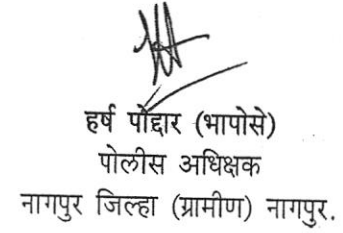 हर्ष पोद्दार (भापोसे)
पोलीस अधिक्षक
नागपुर जिल्हा (ग्रामीण) नागपुर.